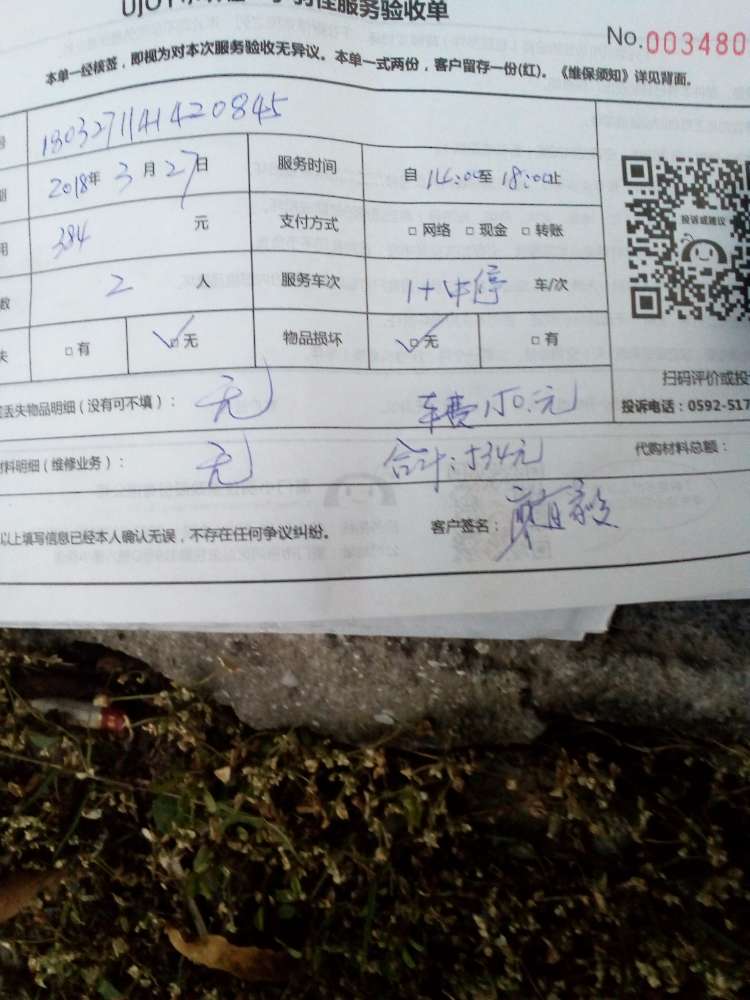 性服务验收单
No.003480
本单一经核签，即视为对本次服务验收无异议。本单一式两份，客户留存一份(红)。《维保须知》详见背面。
号 1803271141420845
期 2018年3月27日 服务时间 自14:00至18:00止
用 384 元 支付方式 □网络 □现金 □转账
数 2 人 服务车次 1+中停 车/次
失 □有 ✓□无 物品损坏 ✓□无 □有
投诉或建议
扫码评价或投
丢失物品明细（没有可不填）： 无 车费150.元
投诉电话：0592-517
材料明细（维修业务）： 无 合计:534元 代购材料总额：
以上填写信息已经本人确认无误，不存在任何争议纠纷。 客户签名：